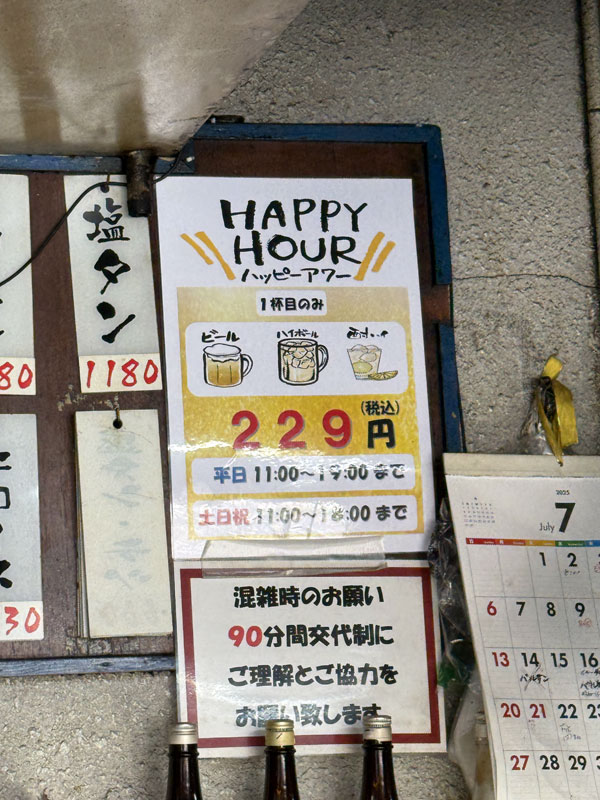 塩タン
1180
80
30
HAPPY
HOUR
ハッピーアワー
1杯目のみ
ビール
ハイボール
酎ハイ
229円
(税込)
平日 11:00～19:00 まで
土日祝 11:00～18:00 まで
混雑時のお願い
90分間交代制に
ご理解とご協力を
お願い致します
2025
July 7
1 2
6 7 8 9
13 14 15 16
20 21 22 23
27 28 29